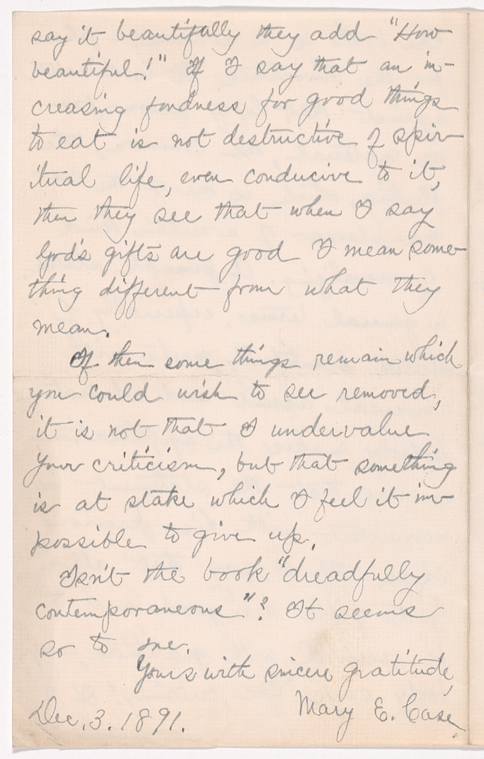 say it beautifully they add "How
beautiful!" If I say that an in-
creasing fondness for good things
to eat is not destructive of spir-
itual life, even conducive to it,
then they see that when I say
God's gifts are good I mean some-
thing different from what they
mean.
If then some things remain which
you could wish to see removed,
it is not that I undervalue
your criticism, but that something
is at stake which I feel it im-
possible to give up.
Isn't the book "dreadfully
contemporaneous"? It seems
so to me.
Yours with sincere gratitude,
Mary E. Case.
Dec. 3. 1891.